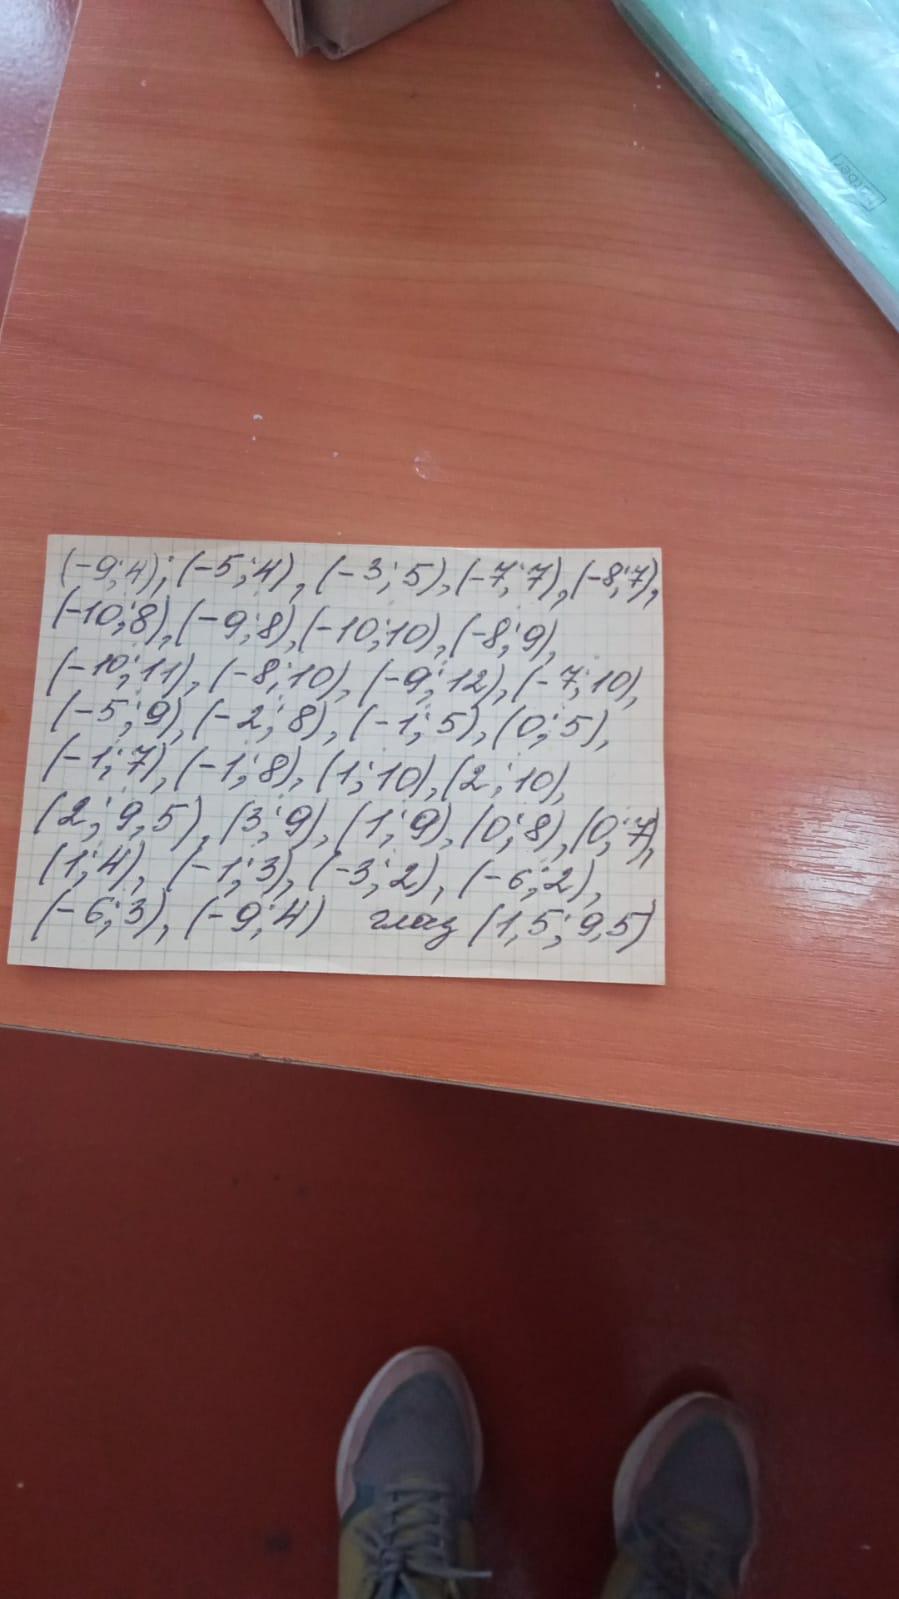 (-9;4); (-5;4), (-3;5), (-7;7), (-8;7),
(-10;8), (-9;8), (-10;10), (-8;9),
(-10;11), (-8;10), (-9;12), (-7;10),
(-5;9), (-2;8), (-1;5), (0;5),
(-1;7), (-1;8), (1;10), (2;10),
(2;9,5), (3;9), (1;9), (0;8), (0;7),
(1;4), (-1;3), (-3;2), (-6;2),
(-6;3), (-9;4) глаз (1,5;9,5)